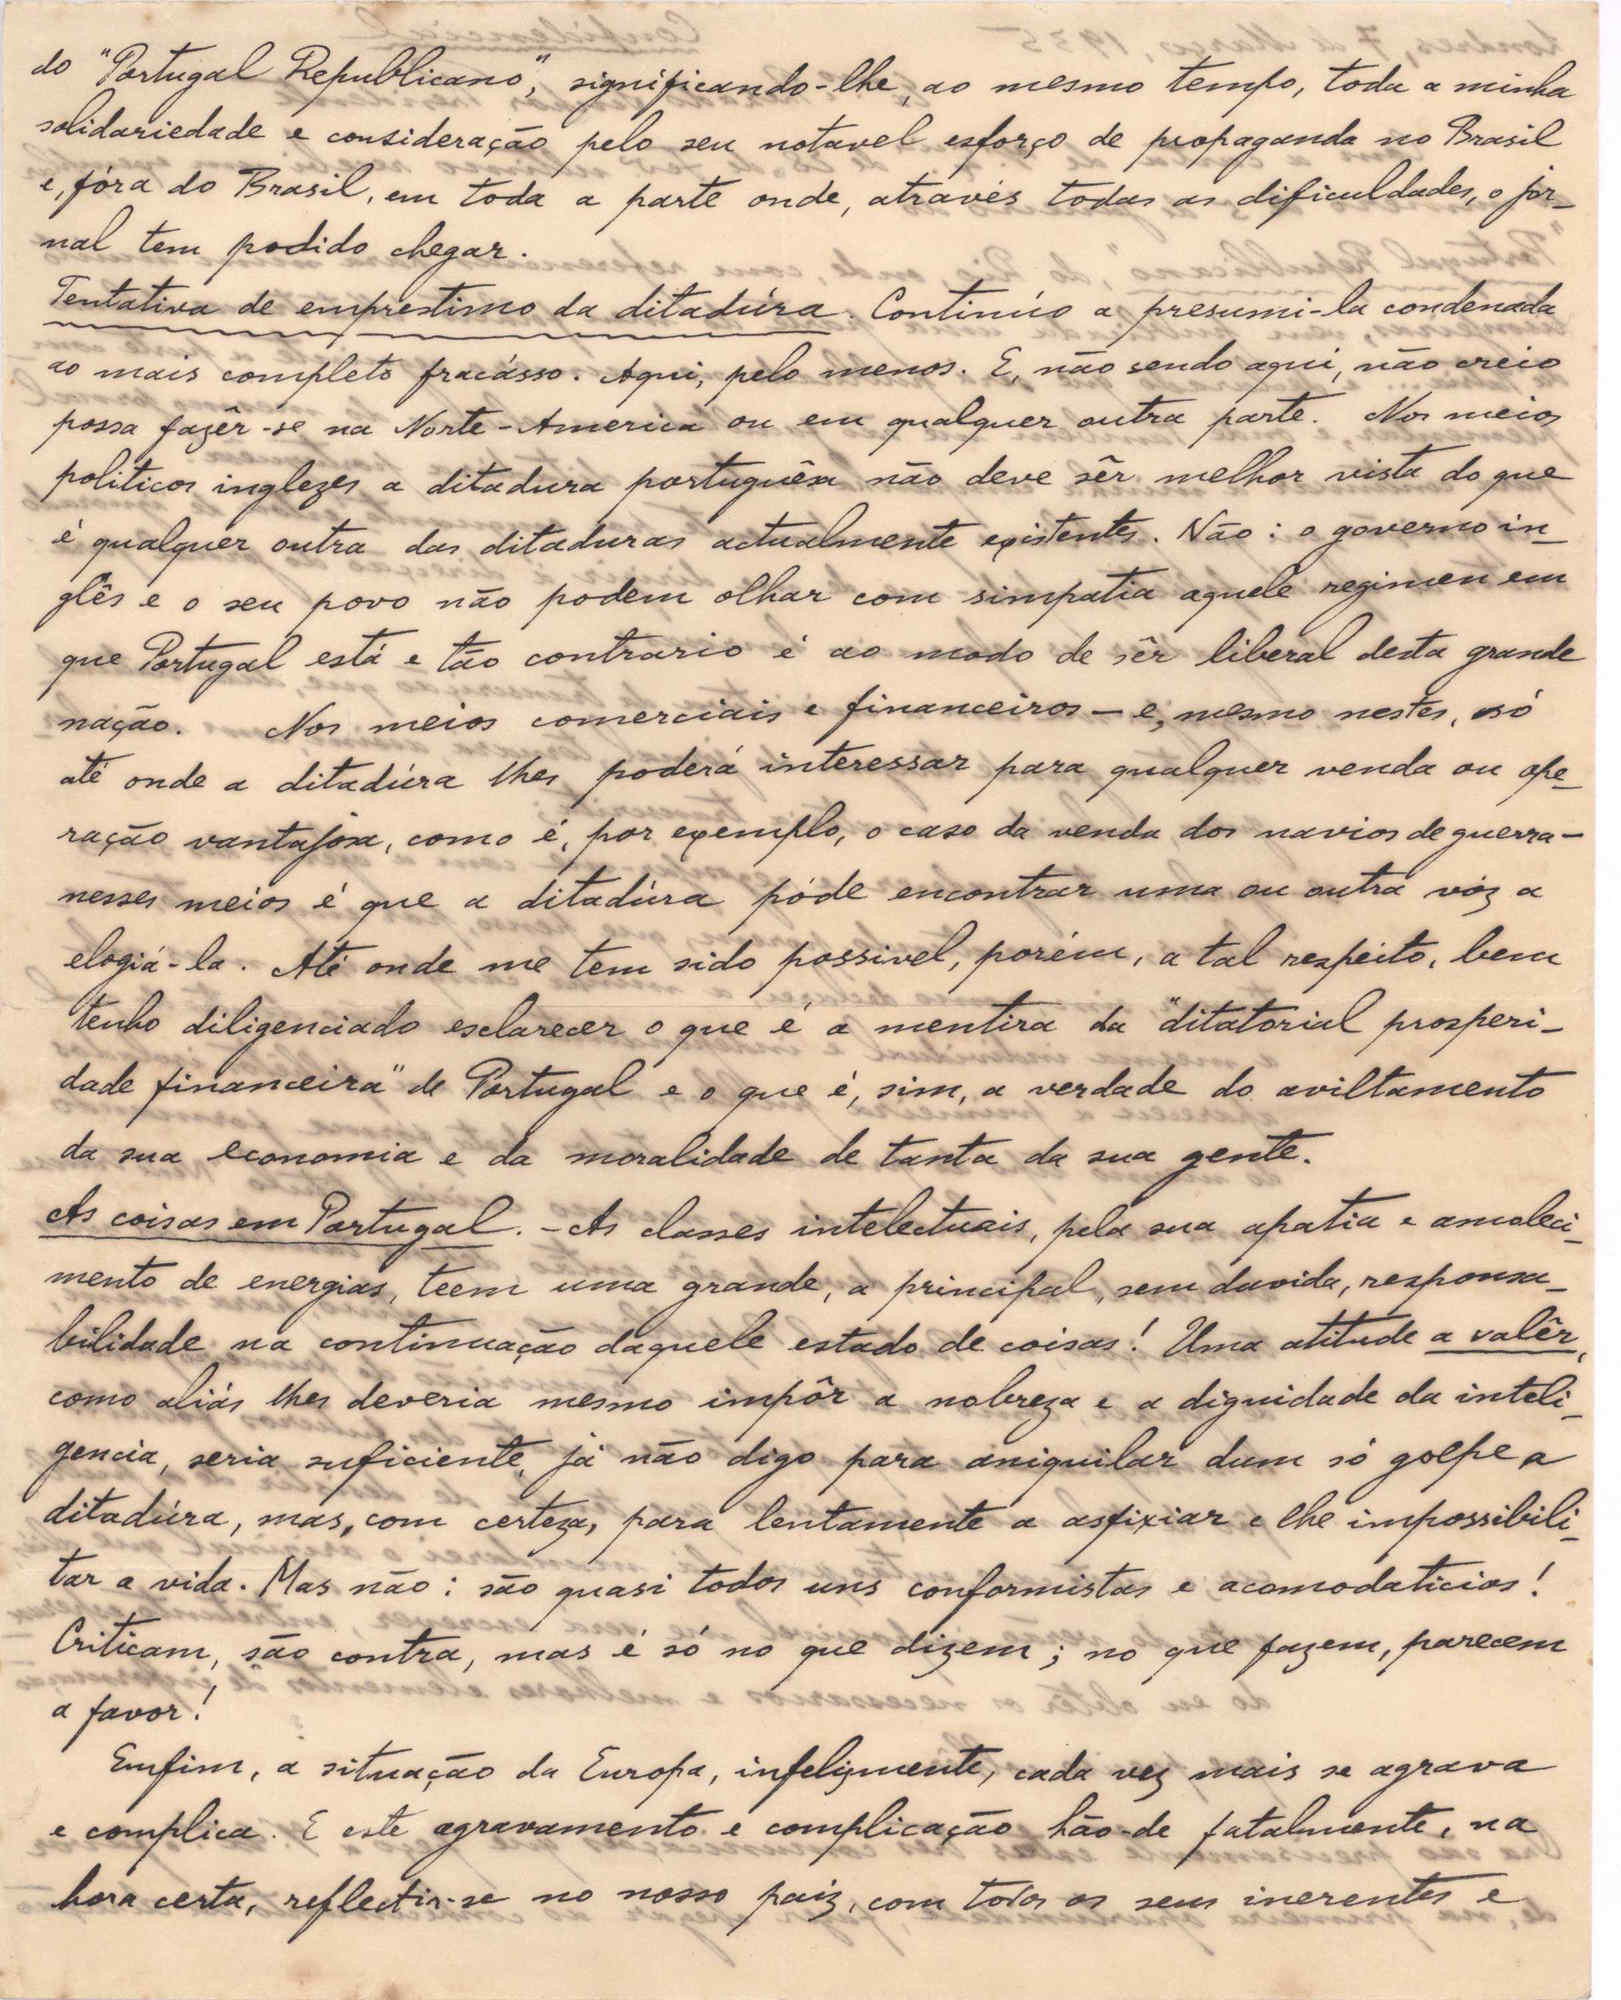 do "Portugal Republicano", significando-lhe, ao mesmo tempo, toda a minha
solidariedade e consideração pelo seu notavel esforço de propaganda no Brasil
e, fóra do Brasil, em toda a parte onde, através todas as dificuldades, o jor-
nal tem podido chegar.
Tentativa de emprestimo da ditadúra. Continúo a presumi-la condenada
ao mais completo fracásso. Aqui, pelo menos. E, não sendo aqui, não creio
possa fazêr-se na Norte-America ou em qualquer outra parte. Nos meios
politicos inglezes a ditadura portuguêsa não deve sêr melhor vista do que
é qualquer outra das ditaduras actualmente existentes. Não: o governo in-
glês e o seu povo não podem olhar com simpatia aquele regimen em
que Portugal está e tão contrario é ao modo de sêr liberal desta grande
nação. Nos meios comerciais e financeiros — e, mesmo nestes, só
até onde a ditadúra lhes poderá interessar para qualquer venda ou ope-
ração vantajosa, como é, por exemplo, o caso da venda dos navios de guerra —
nesses meios é que a ditadúra póde encontrar uma ou outra vóz a
elogiá-la. Até onde me tem sido possivel, porém, a tal respeito, bem
tenho diligenciado esclarecer o que é a mentira da "ditatorial prosperi-
dade financeira" de Portugal e o que é, sim, a verdade do aviltamento
da sua economia e da moralidade de tanta da sua gente.
As coisas em Portugal. - As classes intelectuais, pela sua apatia e amoleci-
mento de energias, teem uma grande, a principal, sem duvida, responsa-
bilidade na continuação daquele estado de coisas! Uma atitude a valêr,
como aliás lhes deveria mesmo impôr a nobreza e a dignidade da inteli-
gencia, seria suficiente, já não digo para aniquilar dum só golpe a
ditadúra, mas, com certeza, para lentamente a asfixiar e lhe impossibili-
tar a vida. Mas não: são quasi todos uns conformistas e acomodaticios!
Criticam, são contra, mas é só no que dizem; no que fazem, parecem
a favor!
Emfim, a situação da Europa, infelizmente, cada vez mais se agrava
e complica. E este agravamento e complicação hão-de fatalmente, na
hora certa, reflectir-se no nosso paiz, com todos os seus inerentes e